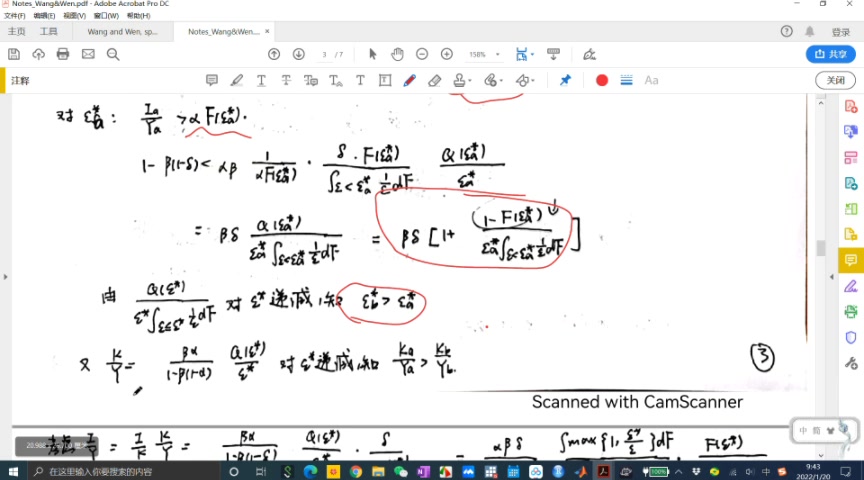 Notes_Wang&Wen.pdf - Adobe Acrobat Pro DC
文件(F) 编辑(E) 视图(V) 窗口(W) 帮助(H)
主页 工具 Wang and Wen, sp... Notes_Wang&Wen.... × 登录
3 / 7 158% 共享
注释 Aa 关闭
对 ε*a : Ia/Ya > αF(ε*).
1 - β(1-δ) < αβ 1/αF(ε*a) · δ·F(ε*a)/∫ε<ε*a 1/ε dF Q(ε*a)/ε*a
= βδ Q(ε*a)/ε*a∫ε<ε*a 1/ε dF = βδ [1+ (1-F(ε*a))↓/ε*a∫ε<ε*a 1/ε dF]
由 Q(ε*)/ε*∫ε≤ε* 1/ε dF 对 ε* 递减,知 ε*b > ε*a
又 K/Y = βα/1-β(1-α) Q(ε*)/ε* 对 ε* 递减,知 Ka/Ya > Kb/Yb.
③
Scanned with CamScanner
I/Y = I/K K/Y = βα/1-β(1-δ) Q(ε*) δ = αβδ ∫max{1, ε*/ε}dF F(ε*)
中 简
在这里输入你要搜索的内容 100% 中 9:43
2022/1/20